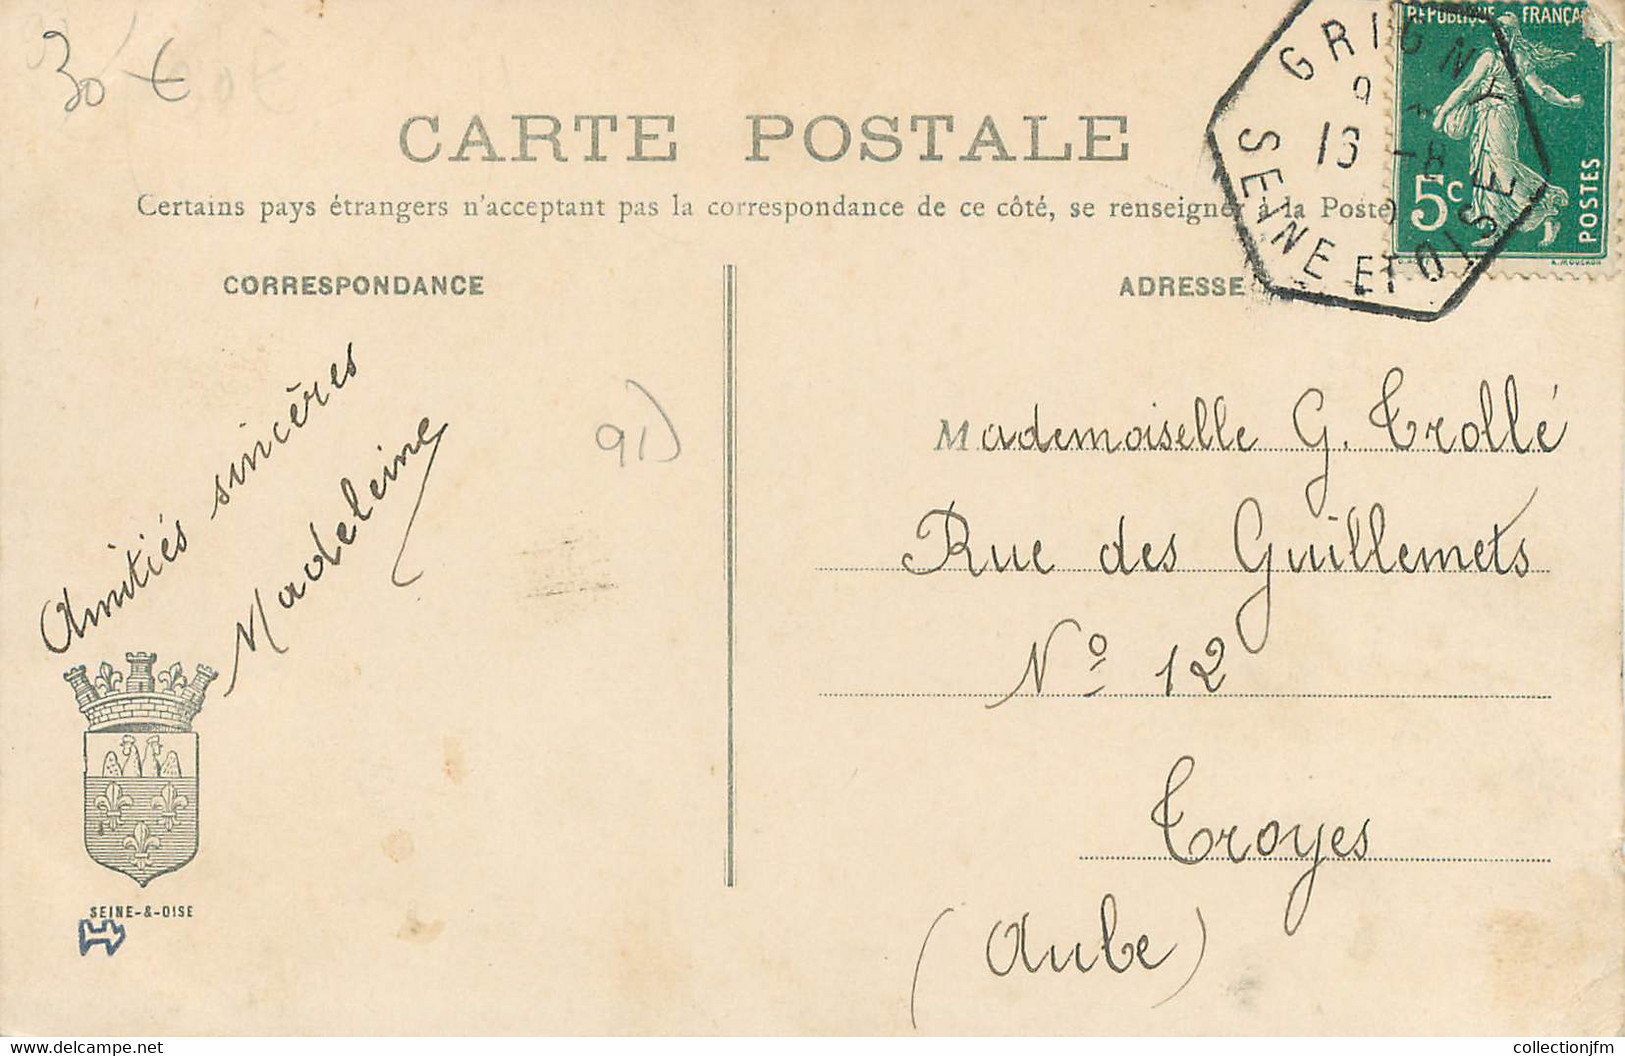 30 €
CARTE POSTALE
Certains pays étrangers n'acceptant pas la correspondance de ce côté, se renseigner à la Poste)
CORRESPONDANCE
ADRESSE
RÉPUBLIQUE FRANÇAI
5c
POSTES
GRIGNY
16 -8
SEINE ET OISE
Amitiés sincères
Madeleine
91)
Mademoiselle G. Trollé
Rue des Guillemets
No 12
Troyes
(Aube)
SEINE-&-OISE
delcampe.net
collectionjfm